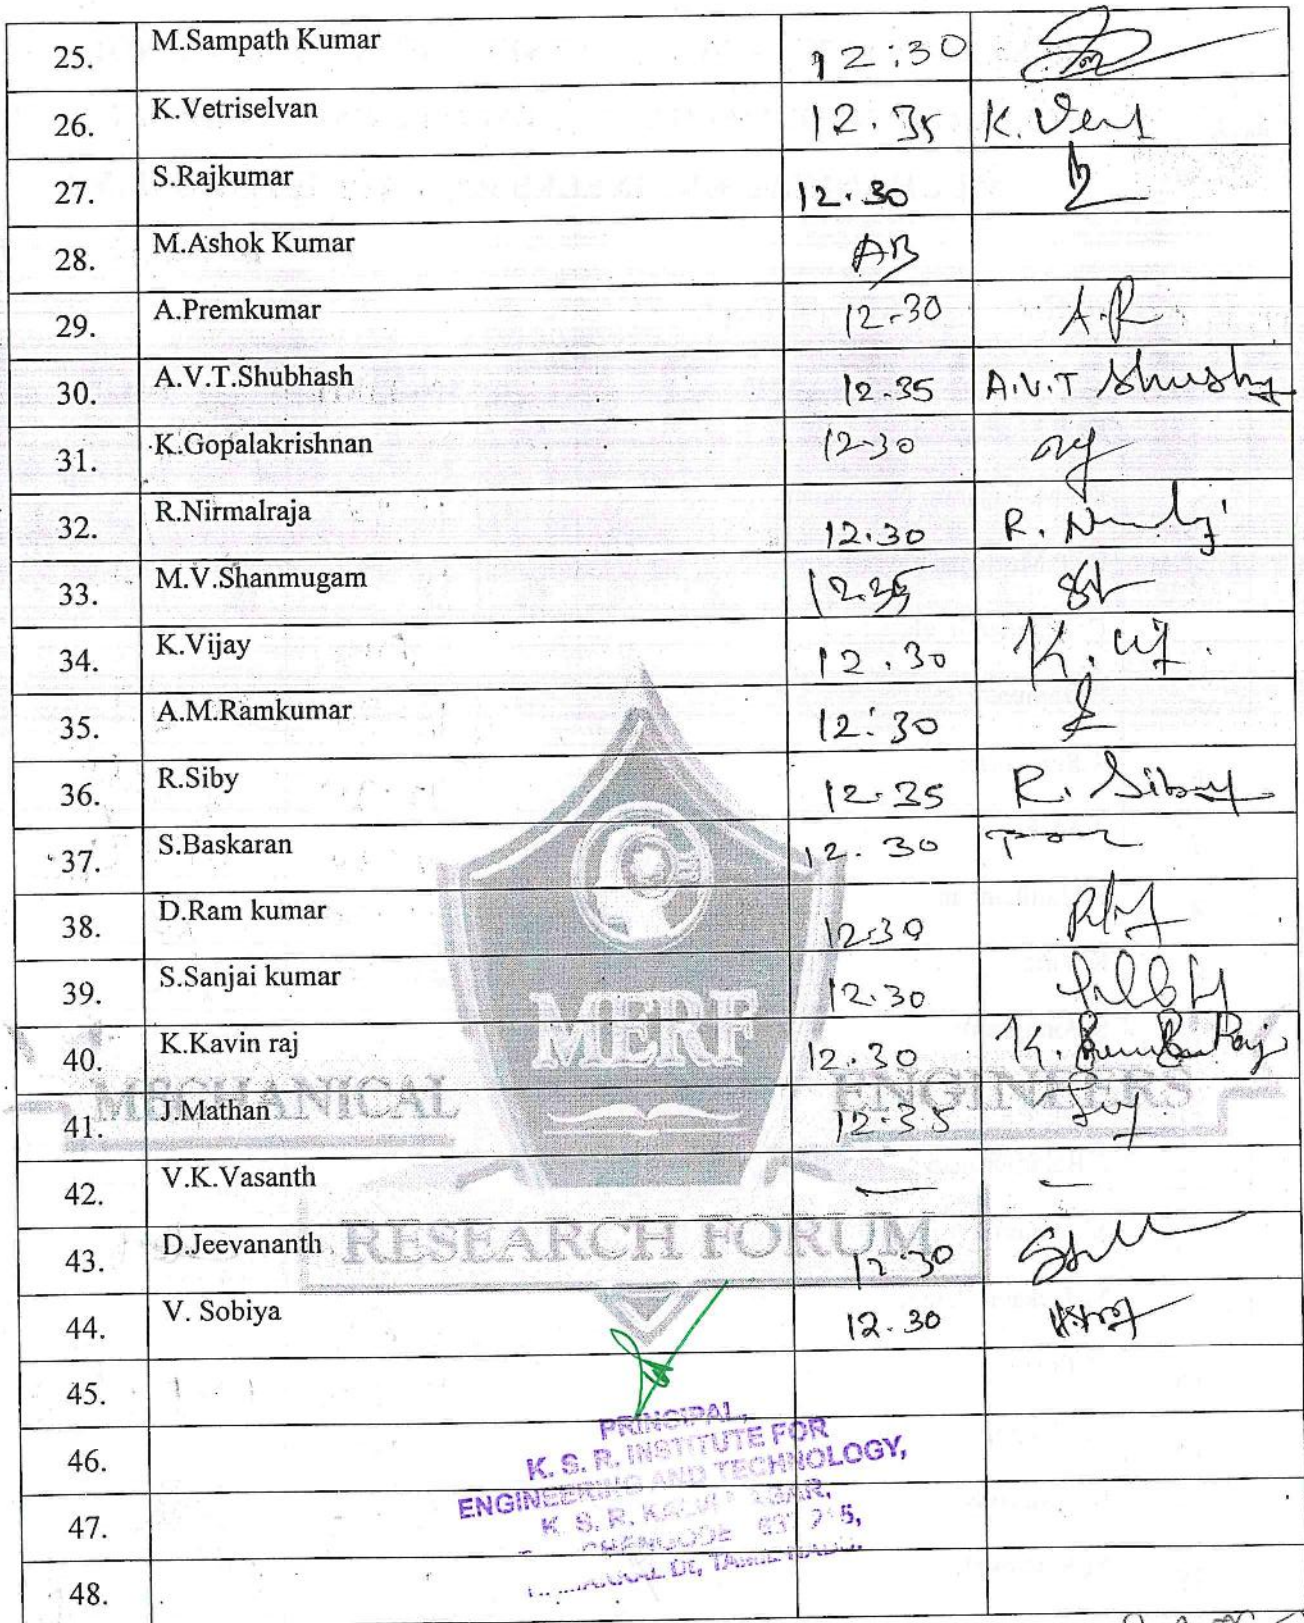 25. M.Sampath Kumar 12:30
26. K.Vetriselvan 12.35 K.
27. S.Rajkumar 12.30
28. M.Ashok Kumar AB
29. A.Premkumar 12.30 A.R
30. A.V.T.Shubhash 12.35 A.V.T
31. K.Gopalakrishnan 12.30
32. R.Nirmalraja 12.30 R.
33. M.V.Shanmugam 12.35
34. K.Vijay 12.30 K.
35. A.M.Ramkumar 12:30
36. R.Siby 12.35 R. Siby
37. S.Baskaran 12.30
38. D.Ram kumar 12.30
39. S.Sanjai kumar 12.30
40. K.Kavin raj 12.30 K.
41. J.Mathan 12.35
42. V.K.Vasanth — —
43. D.Jeevananth 12.30
44. V. Sobiya 12.30
45.
46.
47.
48.
MERF
MECHANICAL ENGINEERS
RESEARCH FORUM
PRINCIPAL,
K. S. R. INSTITUTE FOR
ENGINEERING AND TECHNOLOGY,
K. S. R.